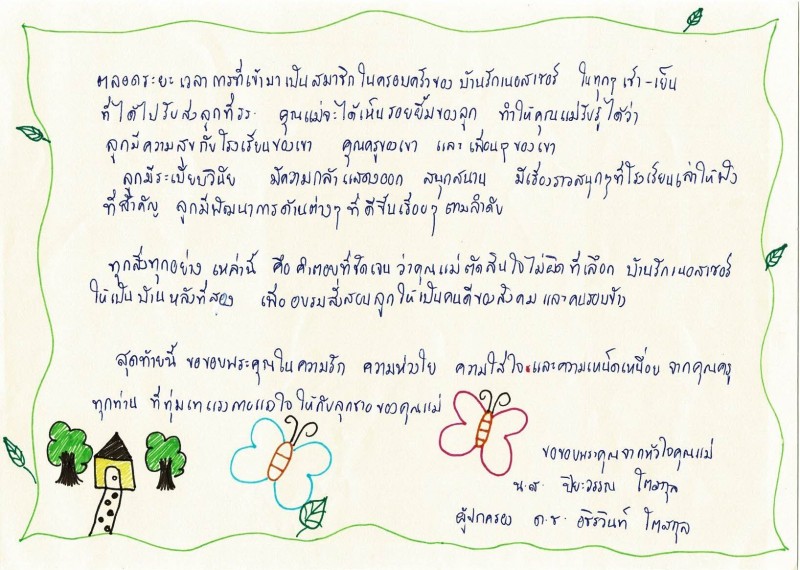 ตลอดระยะเวลาการที่เข้ามาเป็นสมาชิกในครอบครัวของ บ้านรักเนอสเซอร์ ในทุกๆ เช้า-เย็น
ที่ได้ไปรับส่งลูกที่รร. คุณแม่จะได้เห็นรอยยิ้มของลูก ทำให้คุณแม่รับรู้ได้ว่า
ลูกมีความสุขกับโรงเรียนของเขา คุณครูของเขา และเพื่อนๆของเขา
ลูกมีระเบียบวินัย มีความกล้าแสดงออก สนุกสนาน มีเรื่องราวสนุกๆที่โรงเรียนเล่าให้ฟัง
ที่สำคัญ ลูกมีพัฒนาการด้านต่างๆ ที่ดีขึ้นเรื่อยๆ ตามลำดับ
ทุกสิ่งทุกอย่าง เหล่านี้ คือ คำตอบที่ชัดเจน ว่าคุณแม่ตัดสินใจไม่ผิดที่เลือก บ้านรักเนอสเซอร์
ให้เป็นบ้านหลังที่สอง เพื่ออบรมสั่งสอนลูกให้เป็นคนดีของสังคม และคนรอบข้าง
สุดท้ายนี้ ขอขอบพระคุณในความรัก ความห่วงใย ความใส่ใจ และความเหน็ดเหนื่อย จากคุณครู
ทุกท่าน ที่ทุ่มเทแรงกายแรงใจ ให้กับลูกชายของคุณแม่
ขอขอบพระคุณจากหัวใจคุณแม่
น.ส. ปิยะวรรณ โตสกุล
ผู้ปกครอง ด.ช. อชิรวินท์ โตสกุล